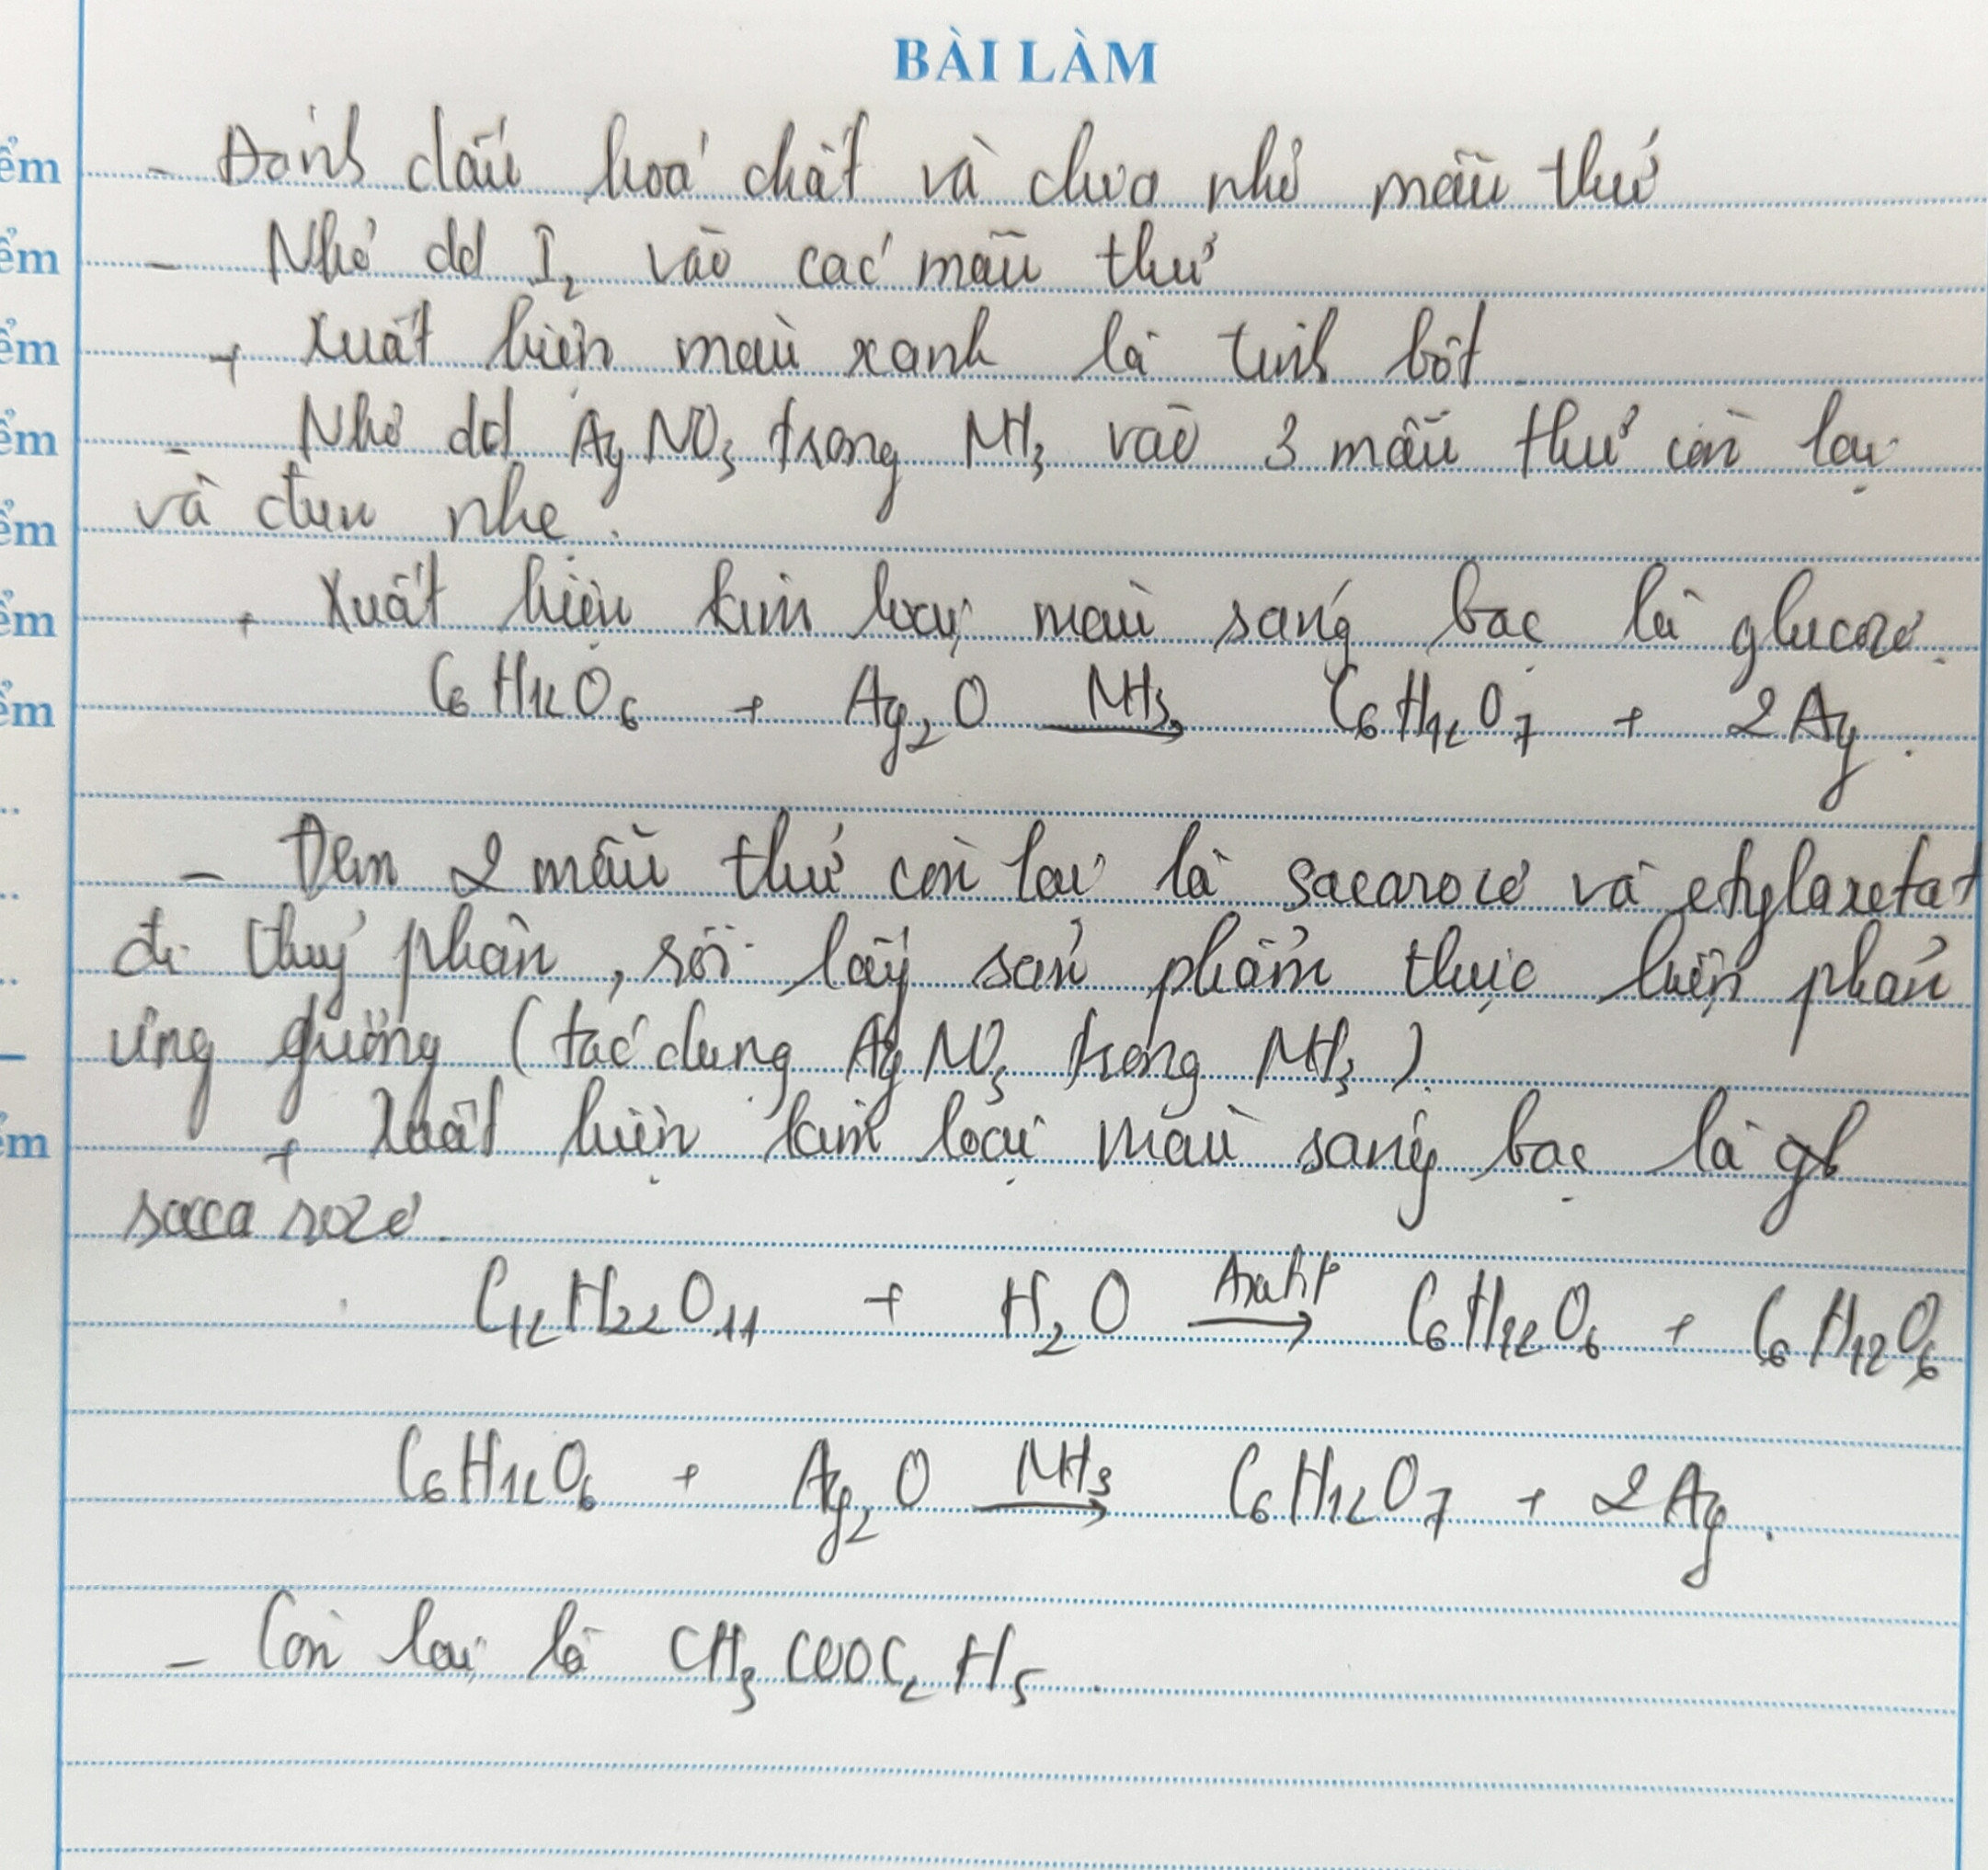 BÀI LÀM
ểm - Đánh dấu hoá chất và chia nhỏ mẫu thử
ểm - Nhỏ dd I₂ vào các mẫu thử
ểm + Xuất hiện màu xanh là tinh bột
ểm - Nhỏ dd AgNO₃ trong NH₃ vào 3 mẫu thử còn lại
ểm và đun nhẹ.
ểm + Xuất hiện kim loại màu sáng bạc là glucozơ.
ểm C₆H₁₂O₆ + Ag₂O NH₃→ C₆H₁₂O₇ + 2Ag.
- Đem 2 mẫu thử còn lại là sacarozơ và etylaxetat
đi thuỷ phân, rồi lấy sản phẩm thực hiện phản
ứng gương (tác dụng AgNO₃ trong NH₃).
ểm + Xuất hiện kim loại màu sáng bạc là gl
saccarozơ.
C₁₂H₂₂O₁₁ + H₂O Axit,t°→ C₆H₁₂O₆ + C₆H₁₂O₆
C₆H₁₂O₆ + Ag₂O NH₃→ C₆H₁₂O₇ + 2Ag.
- Còn lại là CH₃COOC₂H₅.